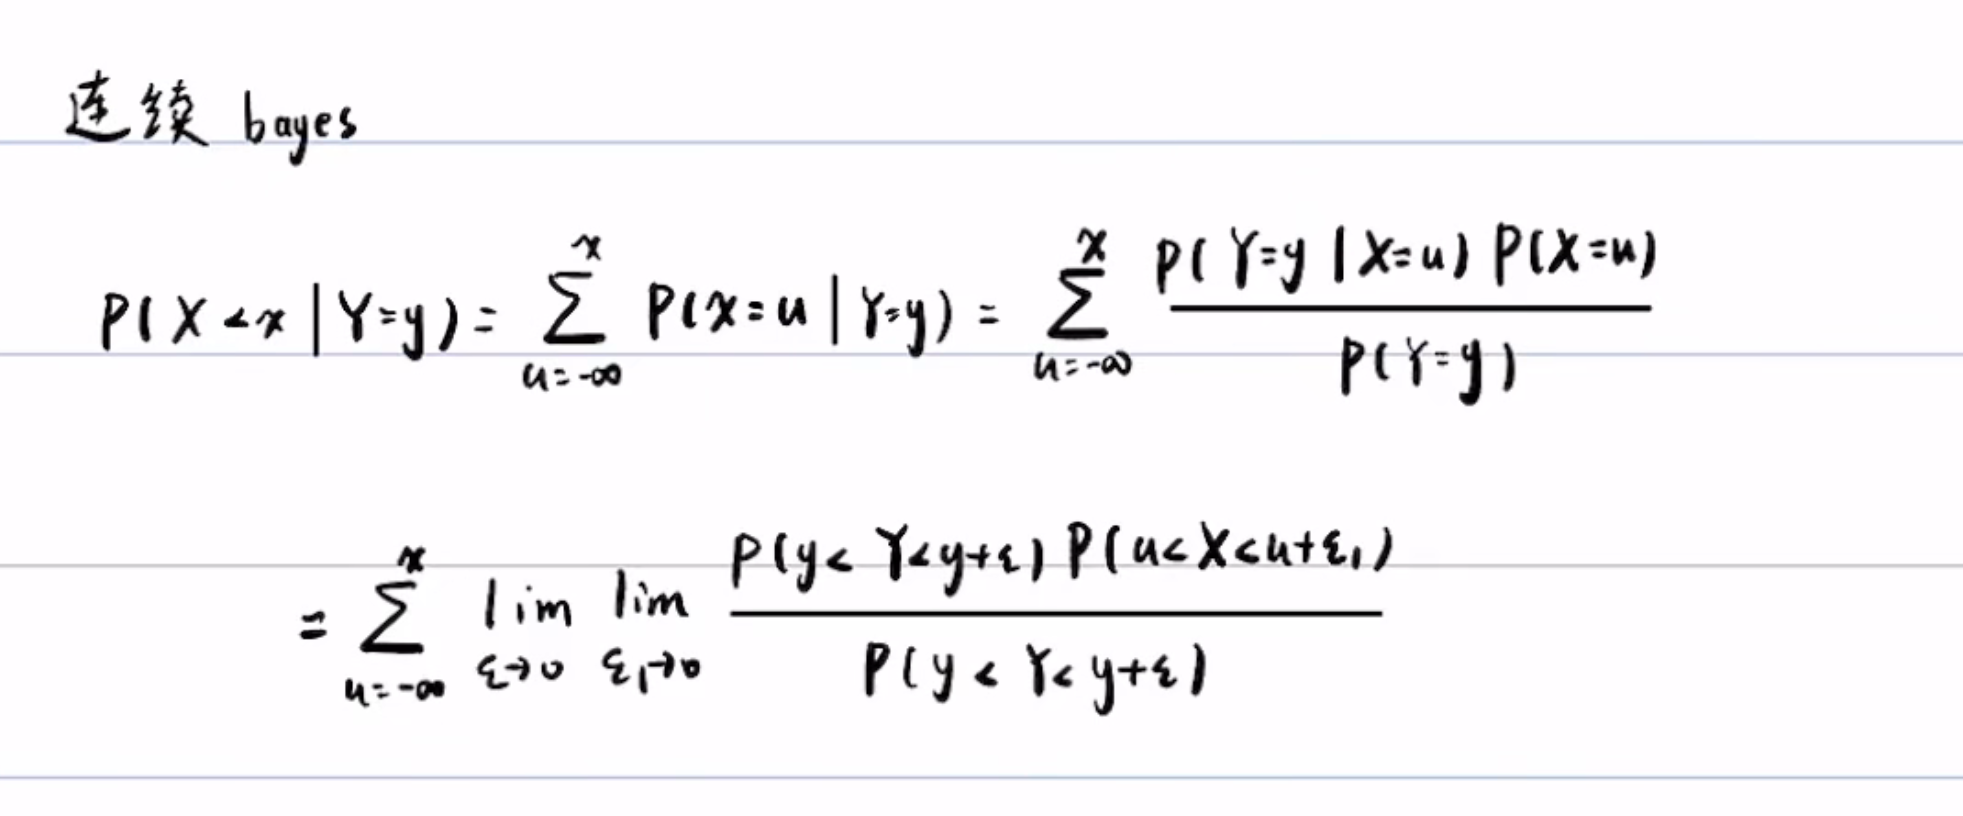 连续 bayes
P(X<x|Y=y) = \sum_{u=-∞}^{x} P(x=u|Y=y) = \sum_{u=-∞}^{x} \frac{P(Y=y|X=u) P(X=u)}{P(Y=y)}
= \sum_{u=-∞}^{x} \lim_{ε→0} \lim_{ε_1→0} \frac{P(y<Y<y+ε) P(u<X<u+ε_1)}{P(y<Y<y+ε)}